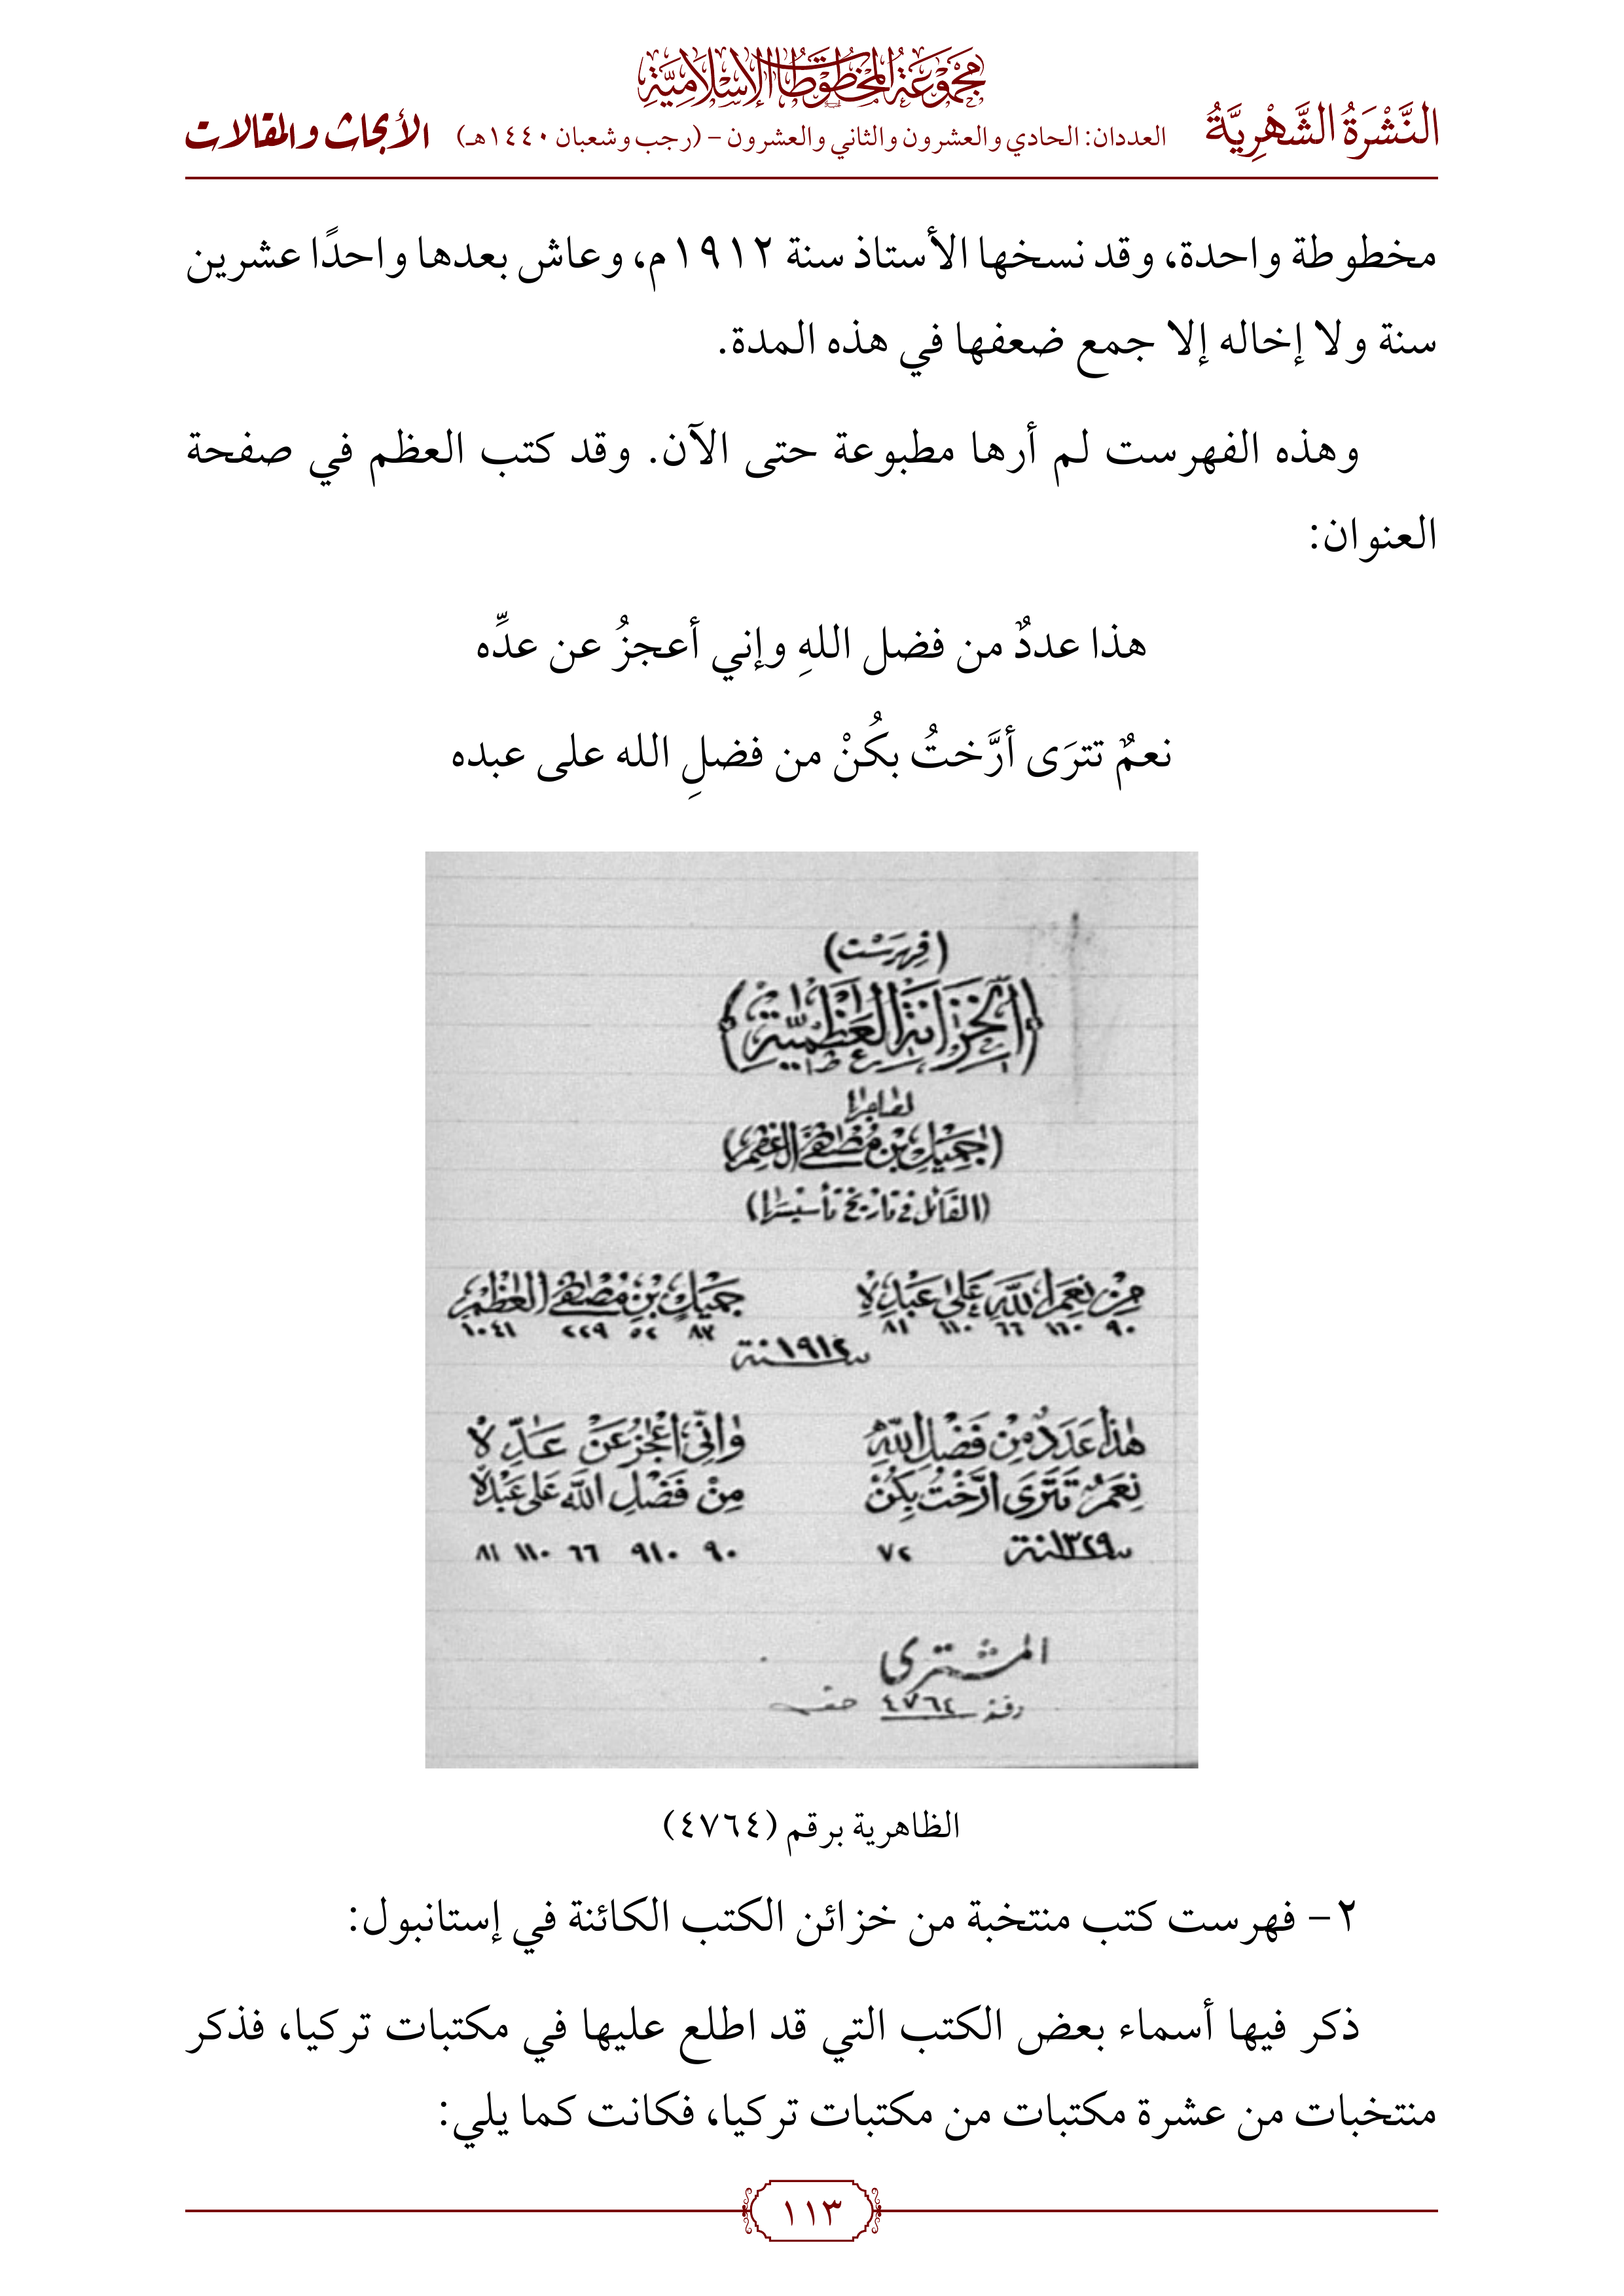 مجموعة المخطوطات الإسلامية
النَّشْرَةُ الشَّهْرِيَّةُ العددان: الحادي والعشرون والثاني والعشرون – (رجب وشعبان ١٤٤٠هـ) الأبحاث والمقالات
مخطوطة واحدة، وقد نسخها الأستاذ سنة ١٩١٢م، وعاش بعدها واحدًا عشرين
سنة ولا إخاله إلا جمع ضعفها في هذه المدة.
وهذه الفهرست لم أرها مطبوعة حتى الآن. وقد كتب العظم في صفحة
العنوان:
هذا عددٌ من فضل اللهِ وإني أعجزُ عن عدِّه
نعمٌ تترَى أرَّختُ بكُنْ من فضلِ الله على عبده
(فهرست)
(الخزانة العظمية)
لصاحبها
(جميل بن مصطفى العظم)
(القائل في تاريخ تأسيسها)
من نعم الله على عبده جميل بن مصطفى العظم
٩٠ ١٦٠ ٦٦ ١١٠ ٨١ ٨٣ ٥٢ ٢٢٩ ١٠٤١
سنة ١٩١٢
هذا عدد من فضل الله واني اعجز عن عده
نعم تترى ارخت بكن من فضل الله على عبده
سنة ١٣٢٩ ٧٢ ٩٠ ٩١٠ ٦٦ ١١٠ ٨١
المشترى
رقم ٤٧٦٤
الظاهرية برقم (٤٧٦٤)
٢– فهرست كتب منتخبة من خزائن الكتب الكائنة في إستانبول:
ذكر فيها أسماء بعض الكتب التي قد اطلع عليها في مكتبات تركيا، فذكر
منتخبات من عشرة مكتبات من مكتبات تركيا، فكانت كما يلي:
١١٣